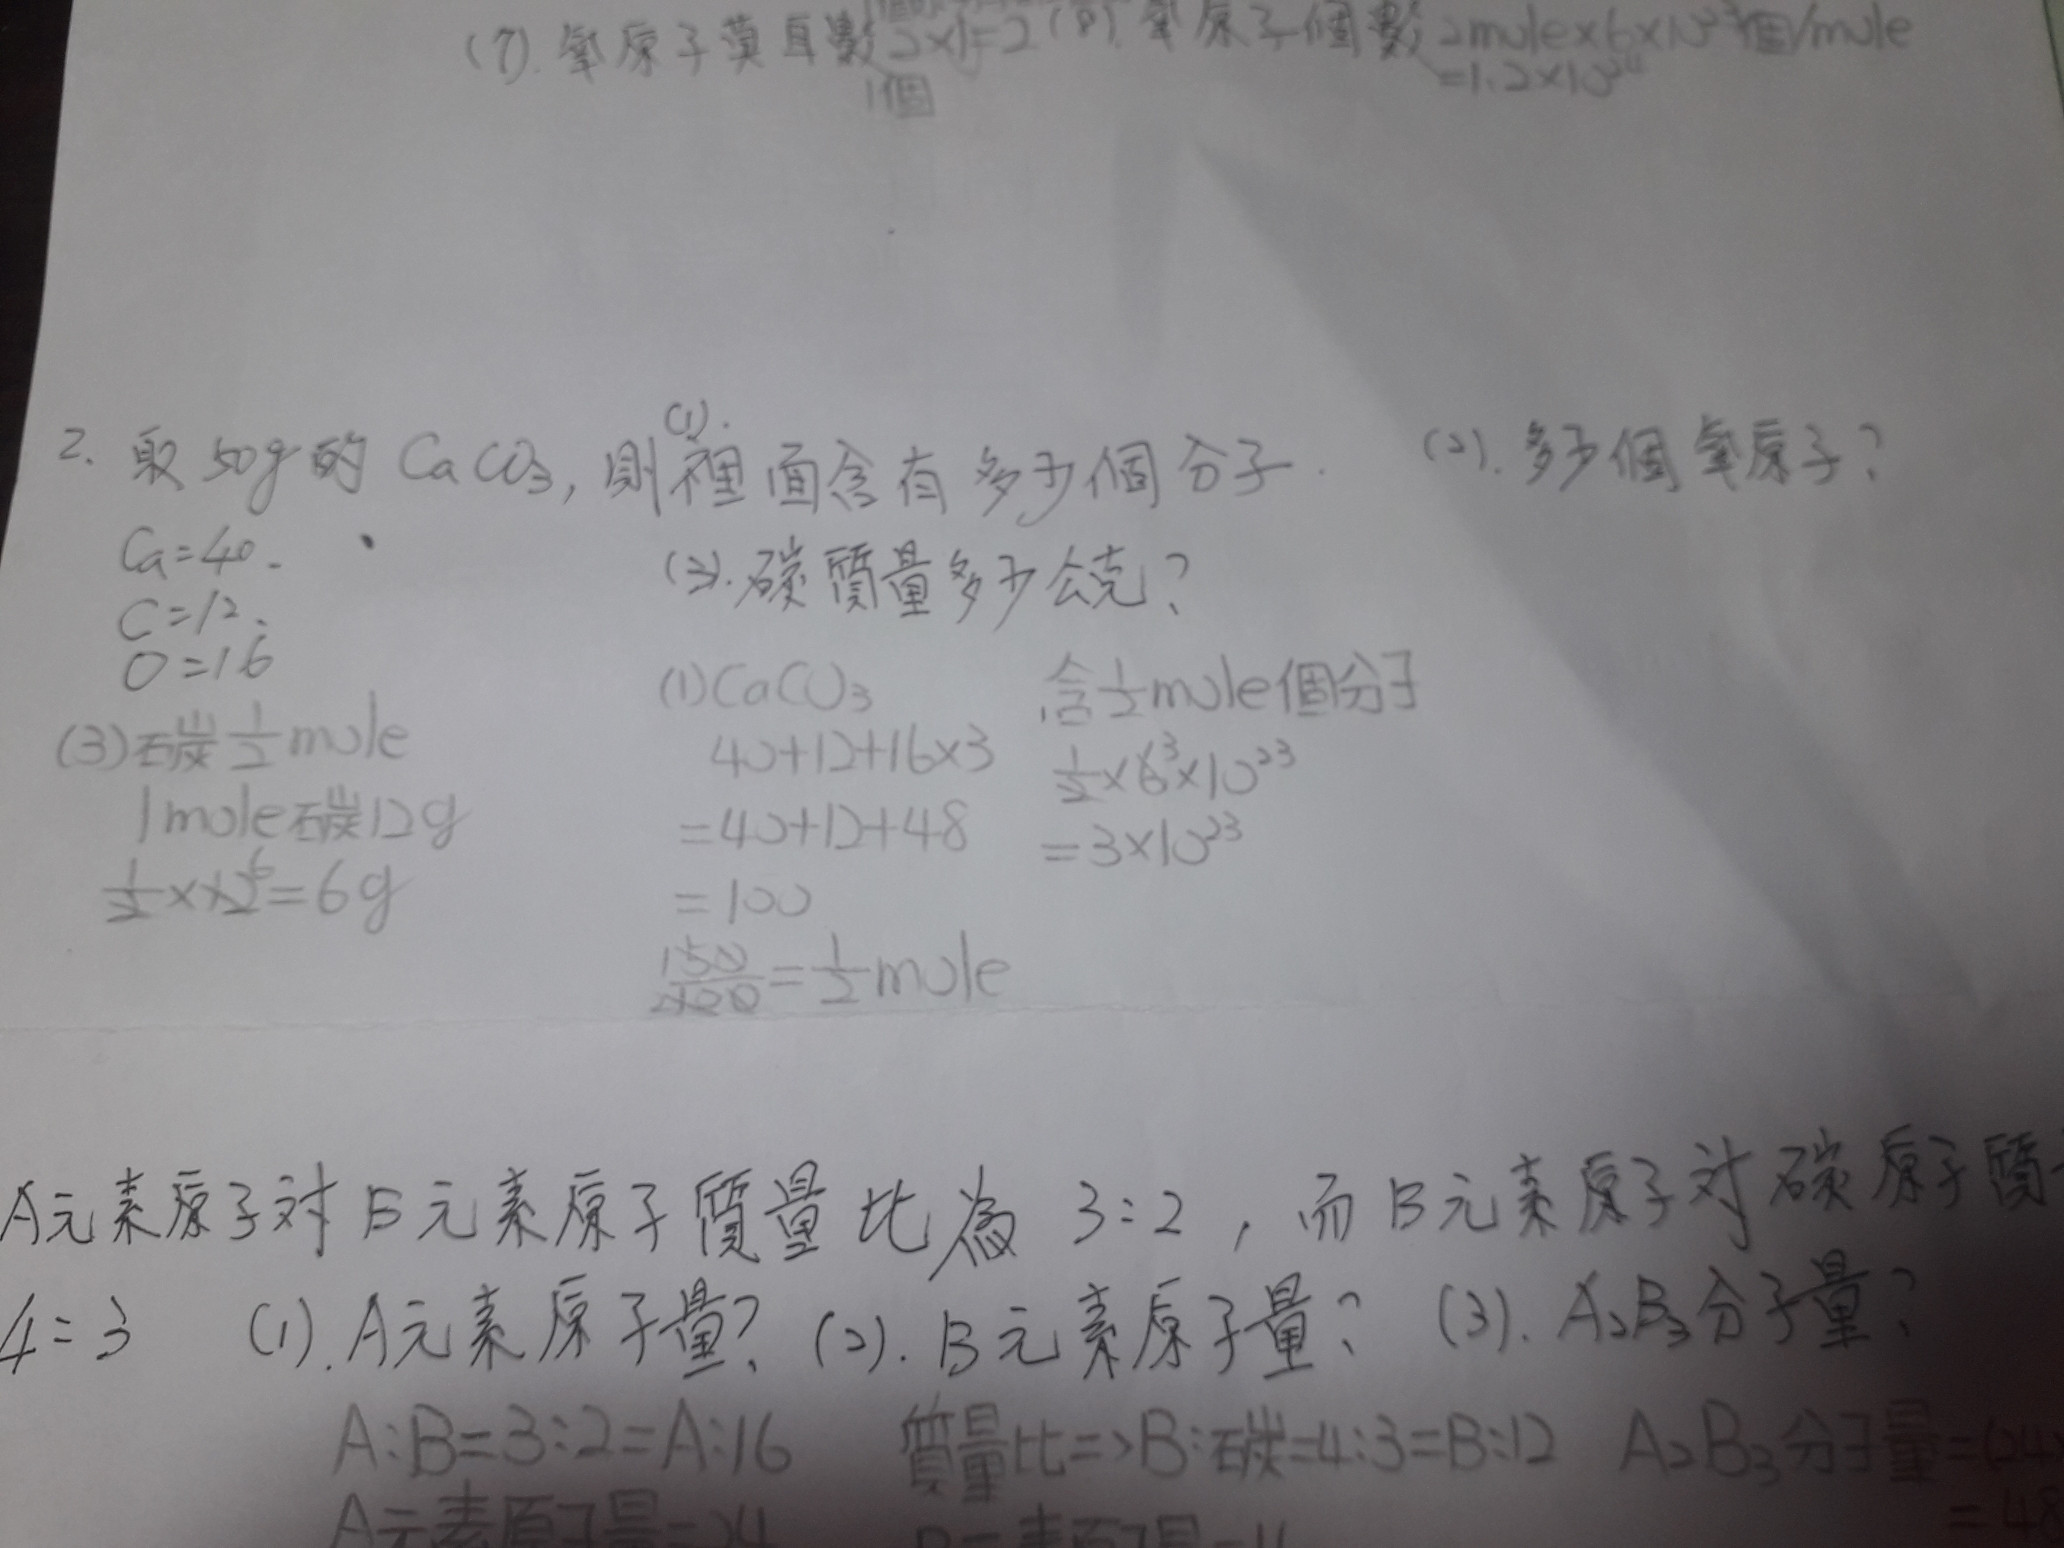 (7). 氧原子莫耳數 2×1=2 (8). 氧原子個數 2mole×6×10²³個/mole
1個
=1.2×10²⁴
2. 取50g的CaCO₃, 則(1).裡面含有多少個分子. (2). 多少個氧原子?
Ca=40.
(3). 碳質量多少公克?
C=12.
O=16
(1)CaCO₃
含½mole個分子
(3)碳½mole
40+12+16×3
½×6³×10²³
1mole碳12g
=40+12+48
=3×10²³
½×12⁶=6g
=100
=½mole
A元素原子对B元素原子質量比為3:2, 而B元素原子对碳原子質
4:3 (1). A元素原子量? (2). B元素原子量? (3). A₂B₃分子量?
A:B=3:2=A:16 質量比=>B:碳=4:3=B:12 A₂B₃分子量=(24
A元素原子量=24
=48